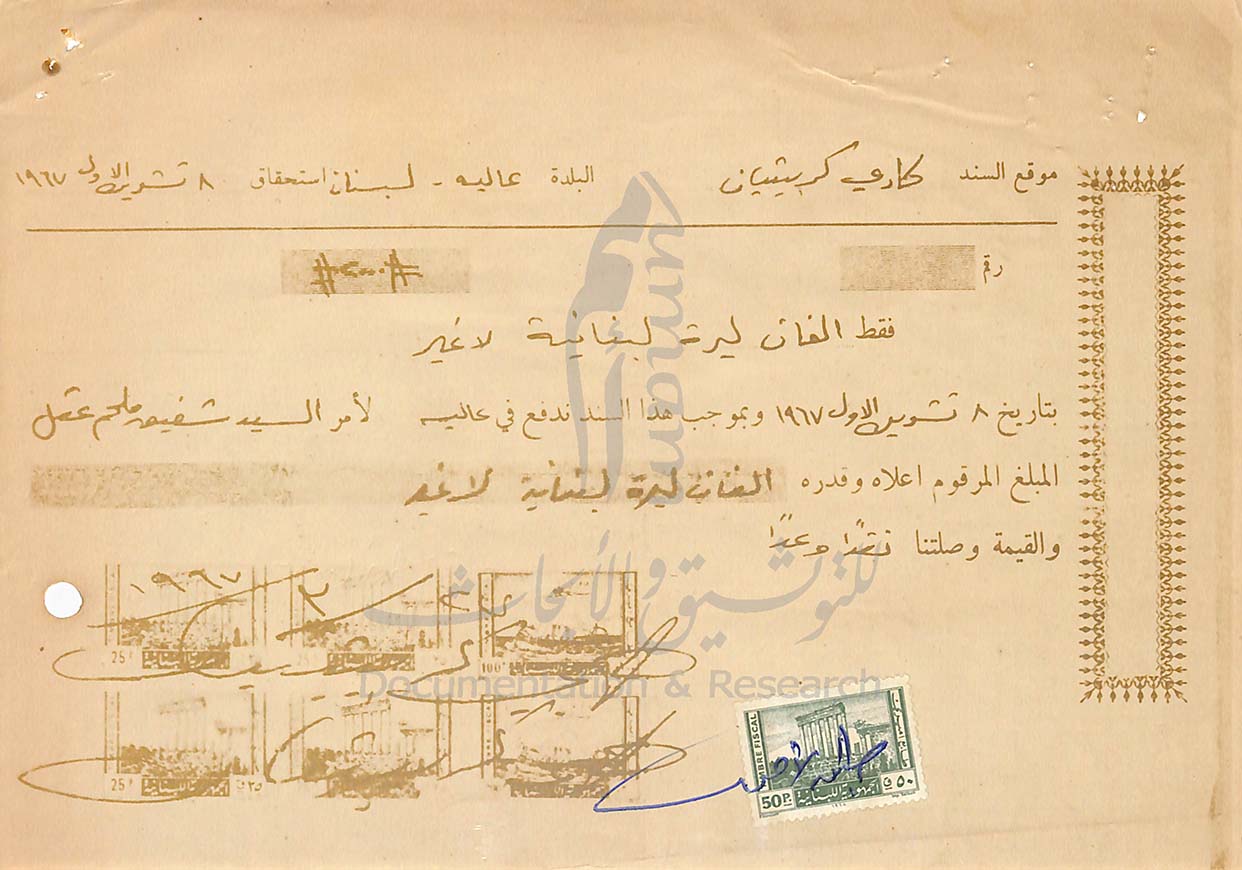 موقع السند كاري كريشيان البلدة عاليه - لبنان استحقاق ٨ تشرين الاول ١٩٦٧
رقم
#٢٠٠٠#
فقط الفان ليرة لبنانية لا غير
بتاريخ ٨ تشرين الاول ١٩٦٧ وبموجب هذا السند ندفع في عاليه لأمر السيد شفيق ملحم عقل
المبلغ المرقوم اعلاه وقدره الفان ليرة لبنانية لا غير
والقيمة وصلتنا نقدًا وعدًا
١٩٦٧
25
100
الجمهورية اللبنانية
25
٢٥
TIMBRE FISCAL
50P.
٥٠ ق
الجمهورية اللبنانية
umam
للتوثيق والأبحاث
Documentation & Research